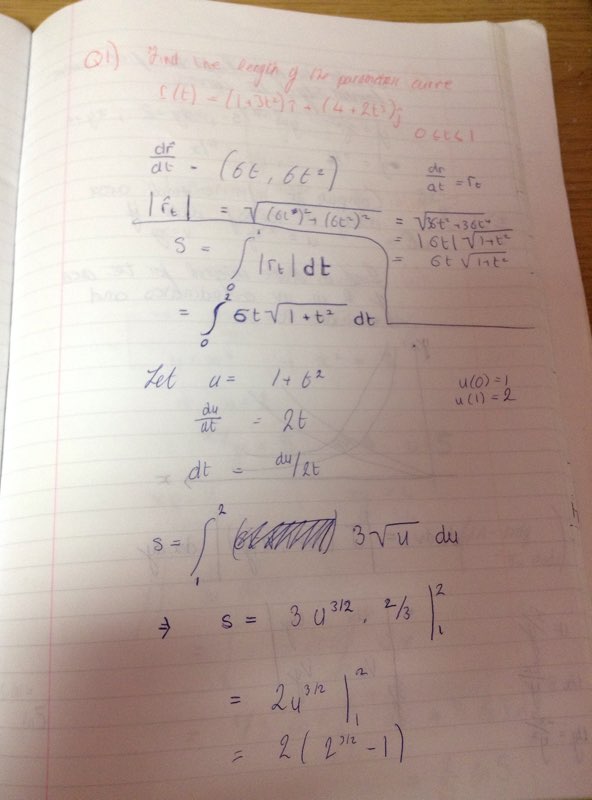 Q1) Find the length of the parametric curve
r(t) = (1+3t²)i + (4+2t³)j
0≤t≤1
dr/dt = (6t, 6t²)
dr/dt = rt
|rt| = √((6t)²+(6t²)²) = √(36t²+36t⁴)
= |6t|√(1+t²)
= 6t√(1+t²)
S = ∫₀¹ |rt| dt
= ∫₀² 6t√(1+t²) dt
Let u = 1+t²
u(0)=1
u(1)=2
du/dt = 2t
dt = du/2t
s = ∫₁² 3√u du
⇒ s = 3u^3/2 . 2/3 |₁²
= 2u^3/2 |₁²
= 2(2^3/2 -1)